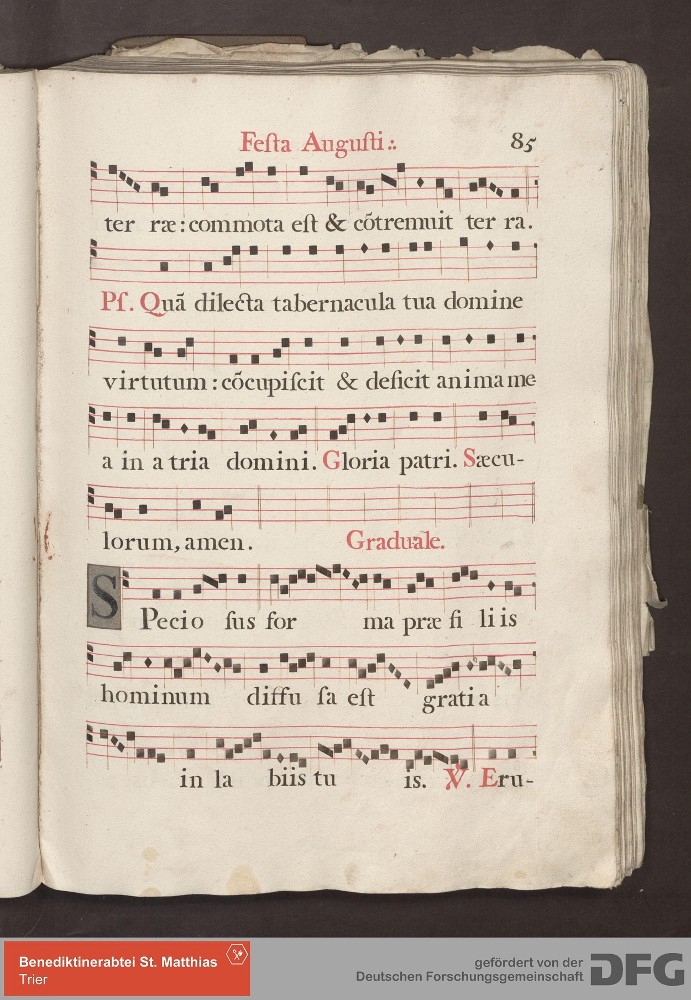 Feſta Auguſti∴ 85
ter ræ: commota eſt & cõtremuit ter ra.
Pſ. Quã dilecta tabernacula tua domine
virtutum: cõcupiſcit & deficit anima me-
a in a tria domini. Gloria patri. Sæcu-
lorum, amen. Graduale.
SPecio ſus for ma præ fi li is
hominum diffu ſa eſt gratia
in la biis tu is. ℣. Eru-
Benediktinerabtei St. Matthias
Trier
gefördert von der
Deutschen Forschungsgemeinschaft
DFG